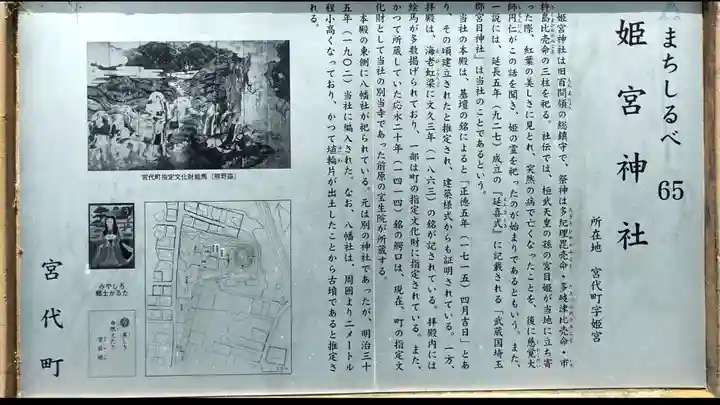 まちしるべ 65
姫宮神社
所在地 宮代町字姫宮
姫宮神社は旧百間領の総鎮守で、祭神は多紀理毘売命・多岐津比売命・市
杵島比売命の三柱を祀る。社伝では、桓武天皇の孫の宮目姫が当地に立ち寄
った際、紅葉の美しさに見とれ、突然の病で亡くなったことを、後に慈覚大
師円仁がこの話を聞き、姫の霊を祀ったのが始まりであるともいう。また、
一説には、延長五年（九二七）成立の『延喜式』に記載される「武蔵国埼玉
郡宮目神社」は当社のことであるという。
当社の本殿は、墓壇の銘によると「正徳五年（一七一五）四月吉日」とあ
り、その頃建立されたと推定され、建築様式からも証明されている。一方、
拝殿は、海老虹梁に文久三年（一八六三）の銘が記されている。拝殿内には
絵馬が多数掲げられており、一部は町の指定文化財に指定されている。また、
かつて所蔵していた応永二十年（一四一四）銘の鰐口は、現在、町の指定文
化財として当社の別当寺であった前原の宝生院が所蔵する。
本殿の東側に八幡社が祀られている。元は別の神社であったが、明治三十
五年（一九〇二）当社に編入された。なお、八幡社は、周囲より二メートル
程小高くなっており、かつて埴輪片が出土したことから古墳であると推定さ
れる。
宮代町指定文化財絵馬「熊野詣」
みやしろ
郷土かるた
宮代町